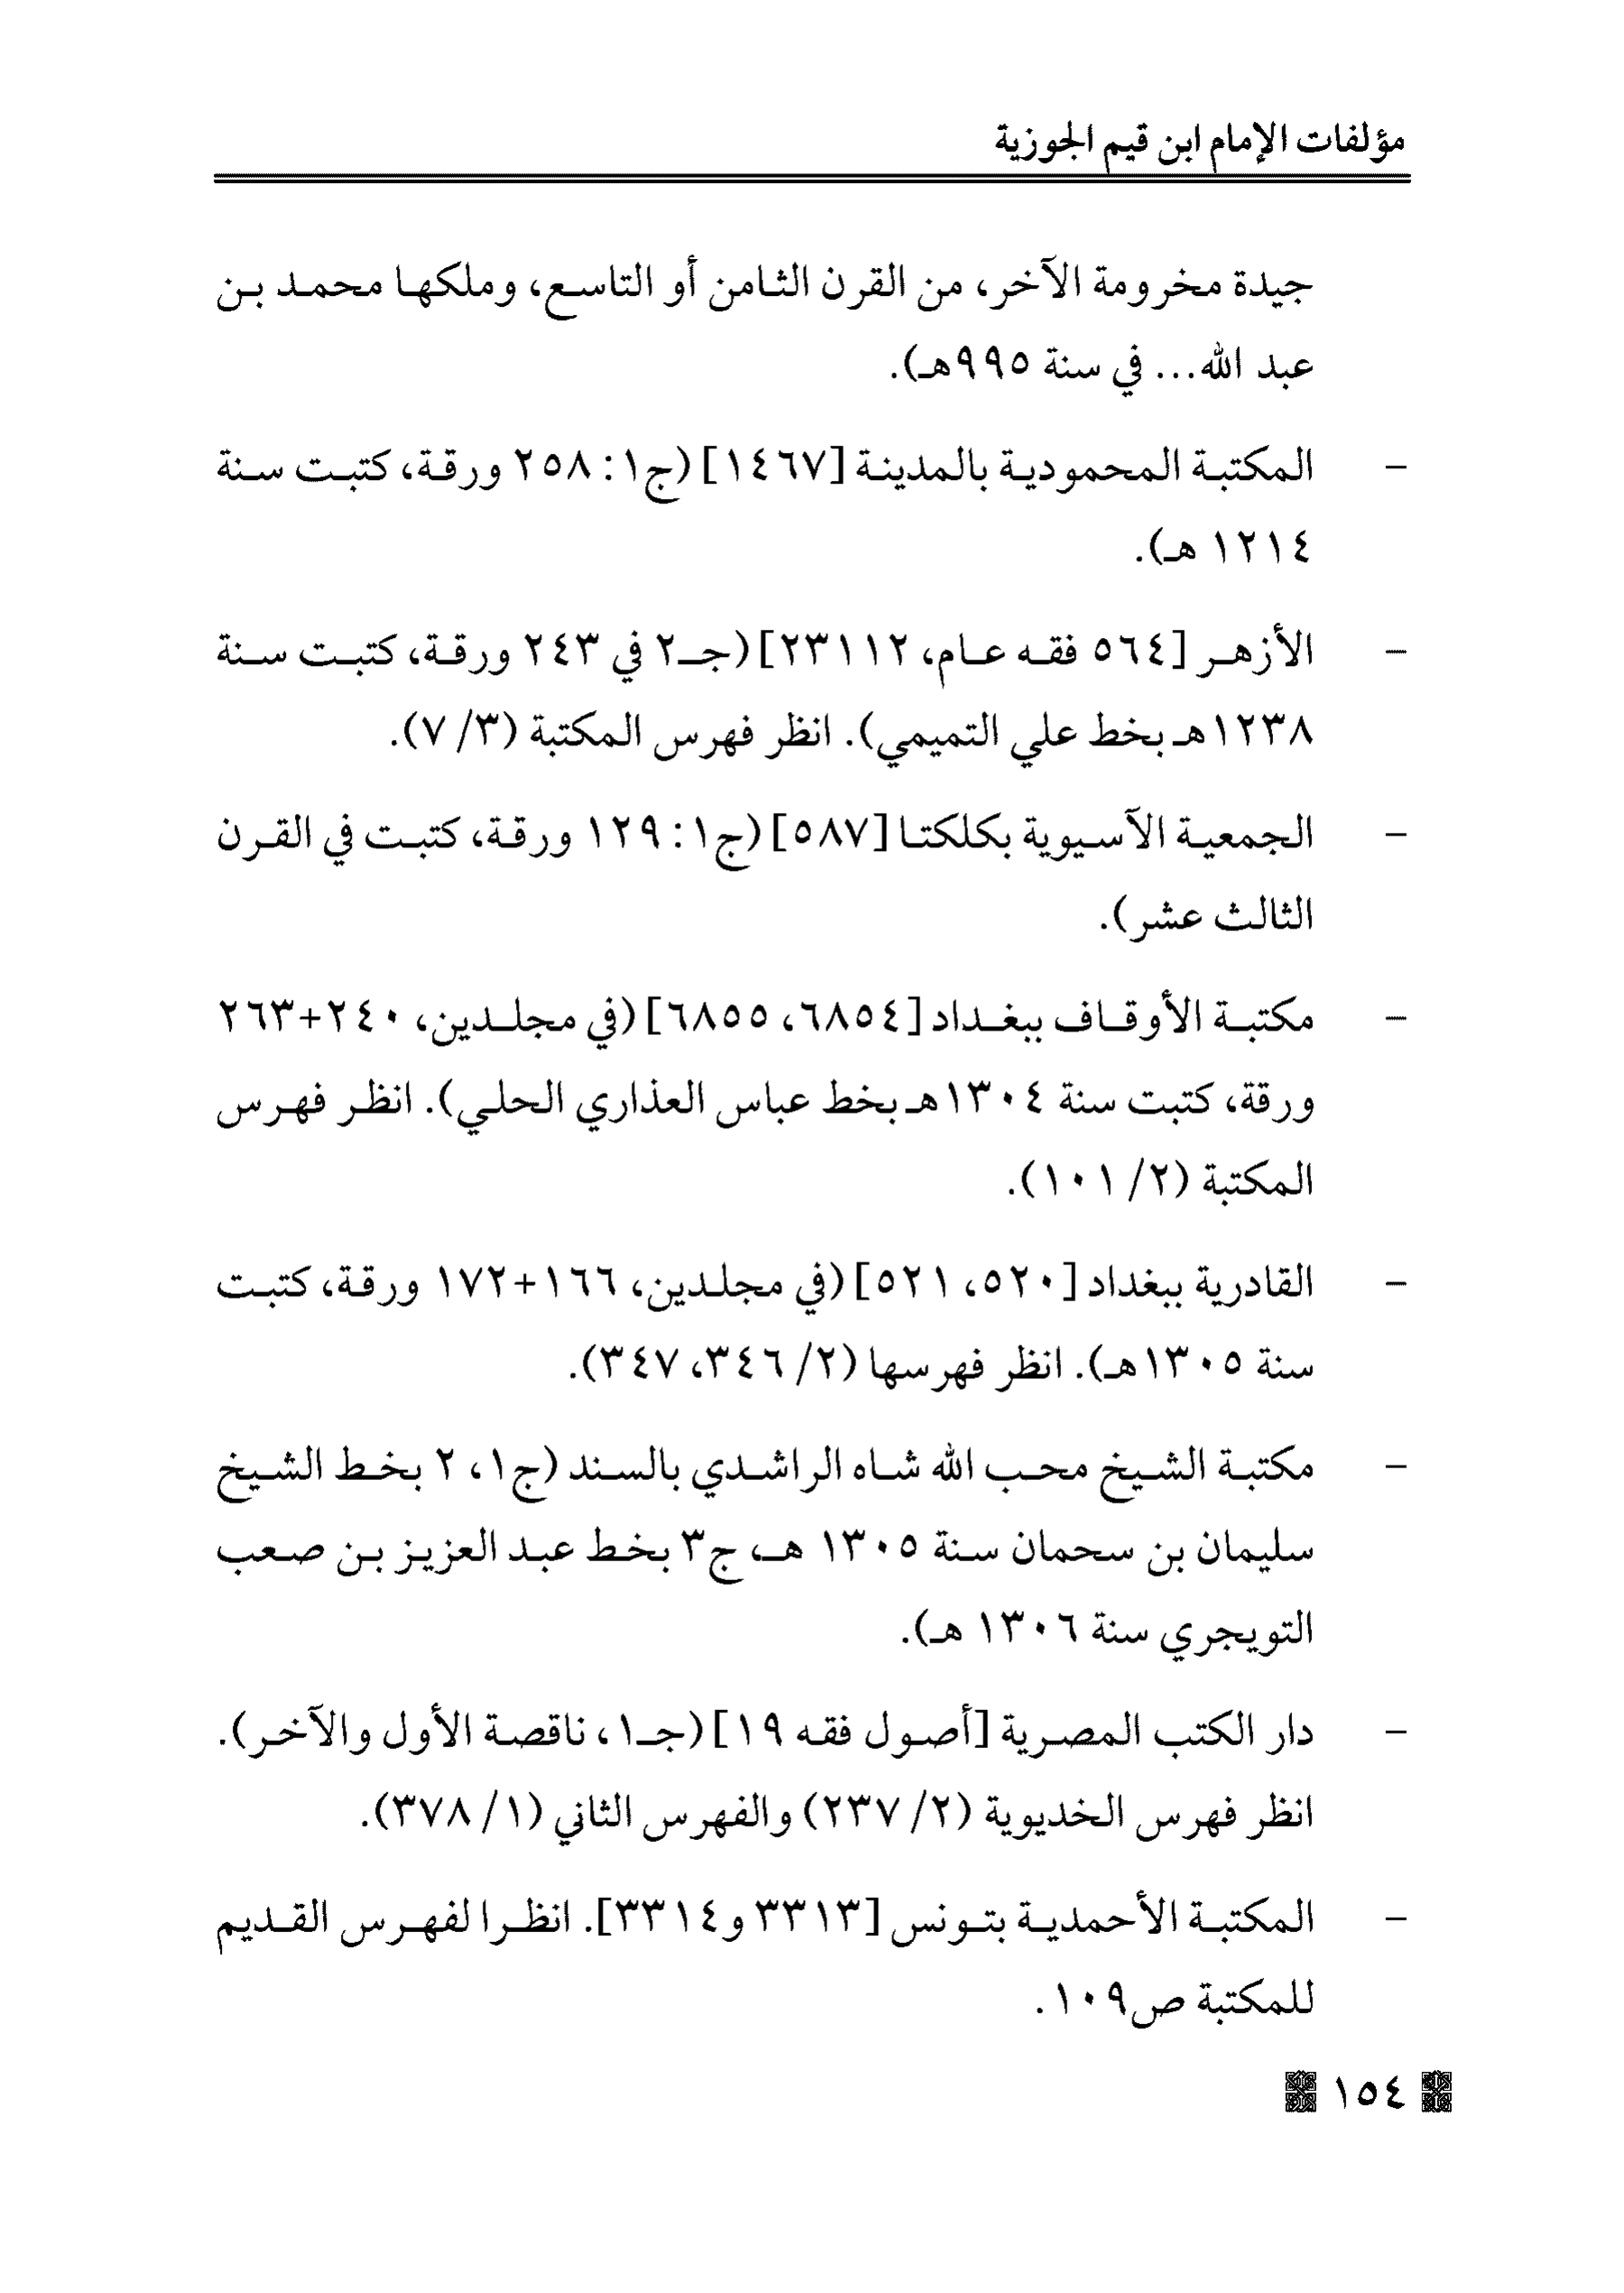 مؤلفات الإمام ابن قيم الجوزية
جيدة مخرومة الآخر، من القرن الثامن أو التاسع، وملكها محمد بن
عبد الله... في سنة ٩٩٥هـ).
- المكتبة المحمودية بالمدينة [١٤٦٧] (ج١: ٢٥٨ ورقة، كتبت سنة
١٢١٤ هـ).
- الأزهر [٥٦٤ فقه عام، ٢٣١١٢] (جـ٢ في ٢٤٣ ورقة، كتبت سنة
١٢٣٨هـ بخط علي التميمي). انظر فهرس المكتبة (٣/ ٧).
- الجمعية الآسيوية بكلكتا [٥٨٧] (ج١: ١٢٩ ورقة، كتبت في القرن
الثالث عشر).
- مكتبة الأوقاف ببغداد [٦٨٥٤، ٦٨٥٥] (في مجلدين، ٢٤٠+٢٦٣
ورقة، كتبت سنة ١٣٠٤هـ بخط عباس العذاري الحلي). انظر فهرس
المكتبة (٢/ ١٠١).
- القادرية ببغداد [٥٢٠، ٥٢١] (في مجلدين، ١٦٦+١٧٢ ورقة، كتبت
سنة ١٣٠٥هـ). انظر فهرسها (٢/ ٣٤٦، ٣٤٧).
- مكتبة الشيخ محب الله شاه الراشدي بالسند (ج١، ٢ بخط الشيخ
سليمان بن سحمان سنة ١٣٠٥ هـ، ج٣ بخط عبد العزيز بن صعب
التويجري سنة ١٣٠٦ هـ).
- دار الكتب المصرية [أصول فقه ١٩] (جـ١، ناقصة الأول والآخر).
انظر فهرس الخديوية (٢/ ٢٣٧) والفهرس الثاني (١/ ٣٧٨).
- المكتبة الأحمدية بتونس [٣٣١٣ و٣٣١٤]. انظرا لفهرس القديم
للمكتبة ص١٠٩.
١٥٤